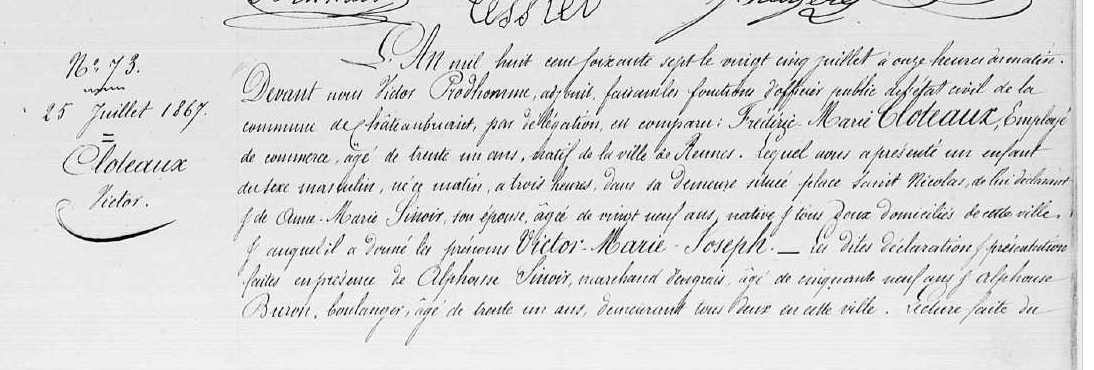 Tessier
N° 73.
25 Juillet 1867.
Cloteaux
Victor.
L'An mil huit cent soixante sept le vingt cinq juillet à onze heures du matin.
Devant nous Victor Prodhomme, adjoint, faisant les fonctions d'officier public de l'état civil de la
commune de Châteaubriant, par délégation, est comparu : Frédéric-Marie Cloteaux, Employé
de commerce, âgé de trente un ans, natif de la ville de Rennes. Lequel nous a présenté un enfant
du sexe masculin, né ce matin, à trois heures, dans sa demeure située place Saint Nicolas, de lui déclarant
& de Anne-Marie Sinoir, son épouse, âgée de vingt neuf ans, native & tous deux domiciliés de cette ville.
& auquel il a donné les prénoms Victor-Marie-Joseph. — Les dites déclaration & présentation
faites en présence de Alphonse Sinoir, marchand d'engrais, âgé de cinquante neuf ans & Alphonse
Buron, boulanger, âgé de trente un ans, demeurant tous deux en cette ville. Lecture faite du